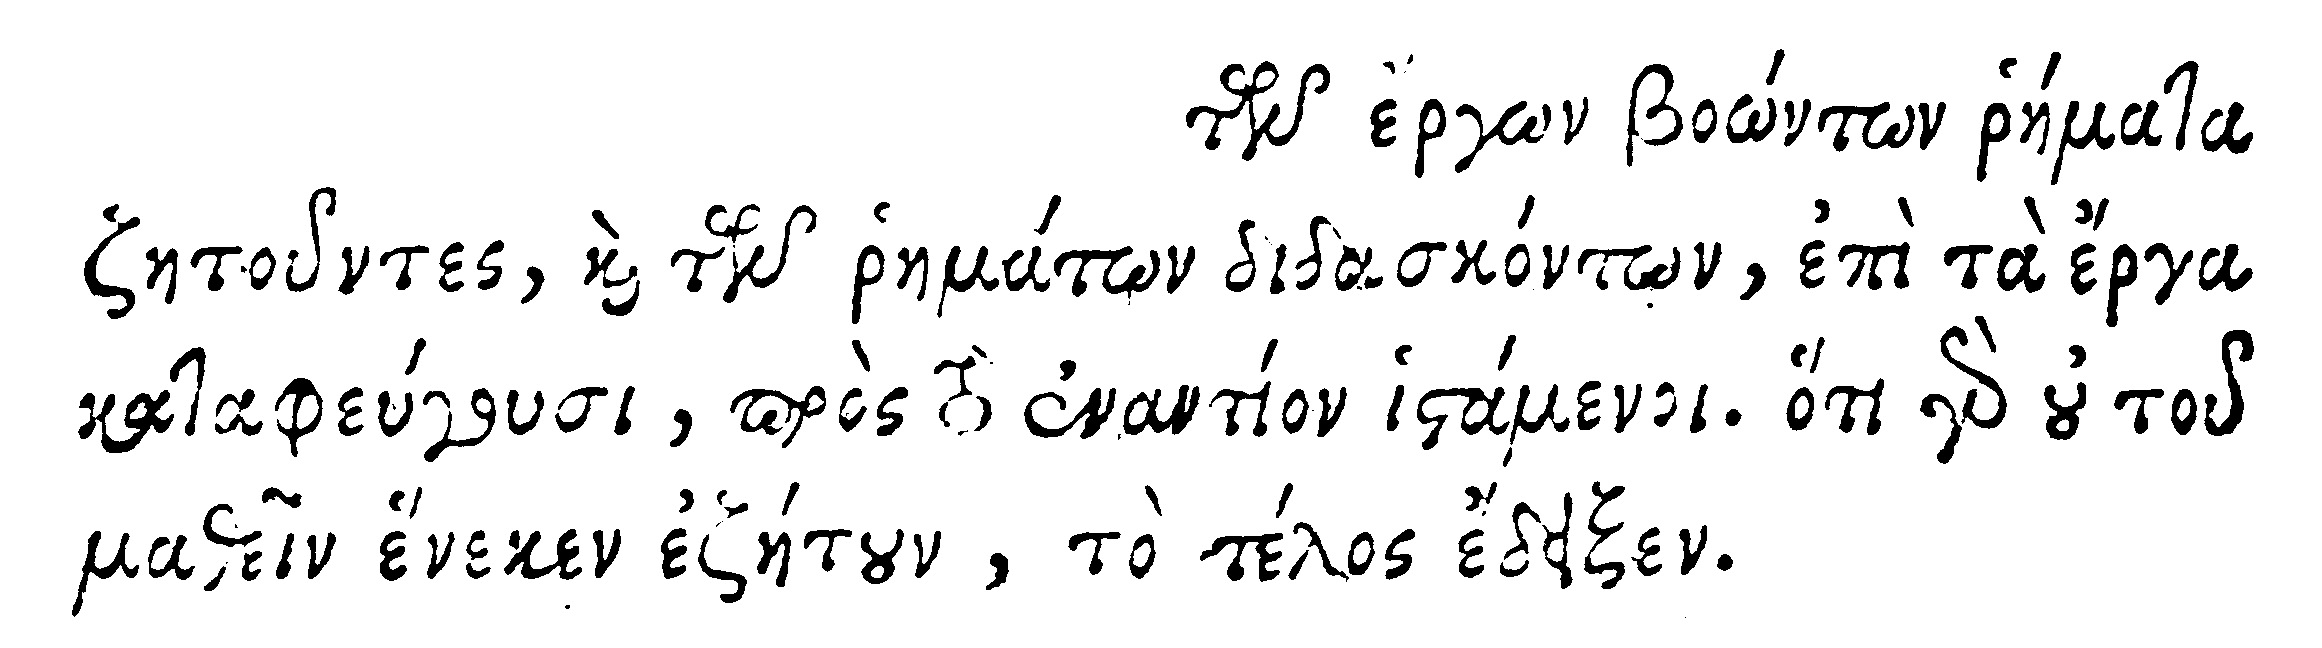 τῶν ἔργων βοώντων ῥήματα
ζητοῦντες, καὶ τῶν ῥημάτων διδασκόντων, ἐπὶ τὰ ἔργα
καταφεύγουσι, πρὸς τὸ ἐναντίον ἱστάμενοι. ὅτι γὰρ οὐ τοῦ
μαθεῖν ἕνεκεν ἐζήτουν, τὸ τέλος ἔδειξεν.